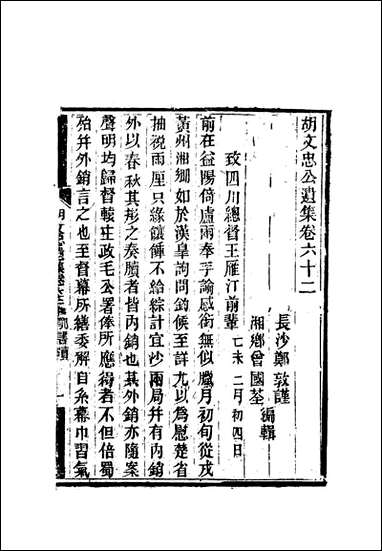 胡文忠公遺集卷六十二
長沙鄭敦謹
湘鄉曾國荃編輯
致四川總督王雁汀前輩 己未二月初四日
前在益陽倚虛雨奉手諭感銜無似臘月初旬從戎
黃州湘鄉如於漢皇詢問鈞候至詳尤以為慰楚省
抽稅兩厘只緣饟偅不給綜計宜沙兩局并有內銷
外以春秋其彤之奏牘者皆內銷也其外銷亦隨案
聲明均歸督轅主政毛公署俸所應得者不但倍蜀
殆并外銷言之也至督幕所繕委解自系幕巾習氣